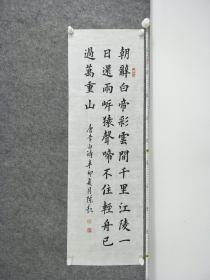 朝辭白帝彩雲間千里江陵一
日還兩岍猿聲啼不住輕舟已
過萬重山
唐李白詩辛卯夏月陈歌